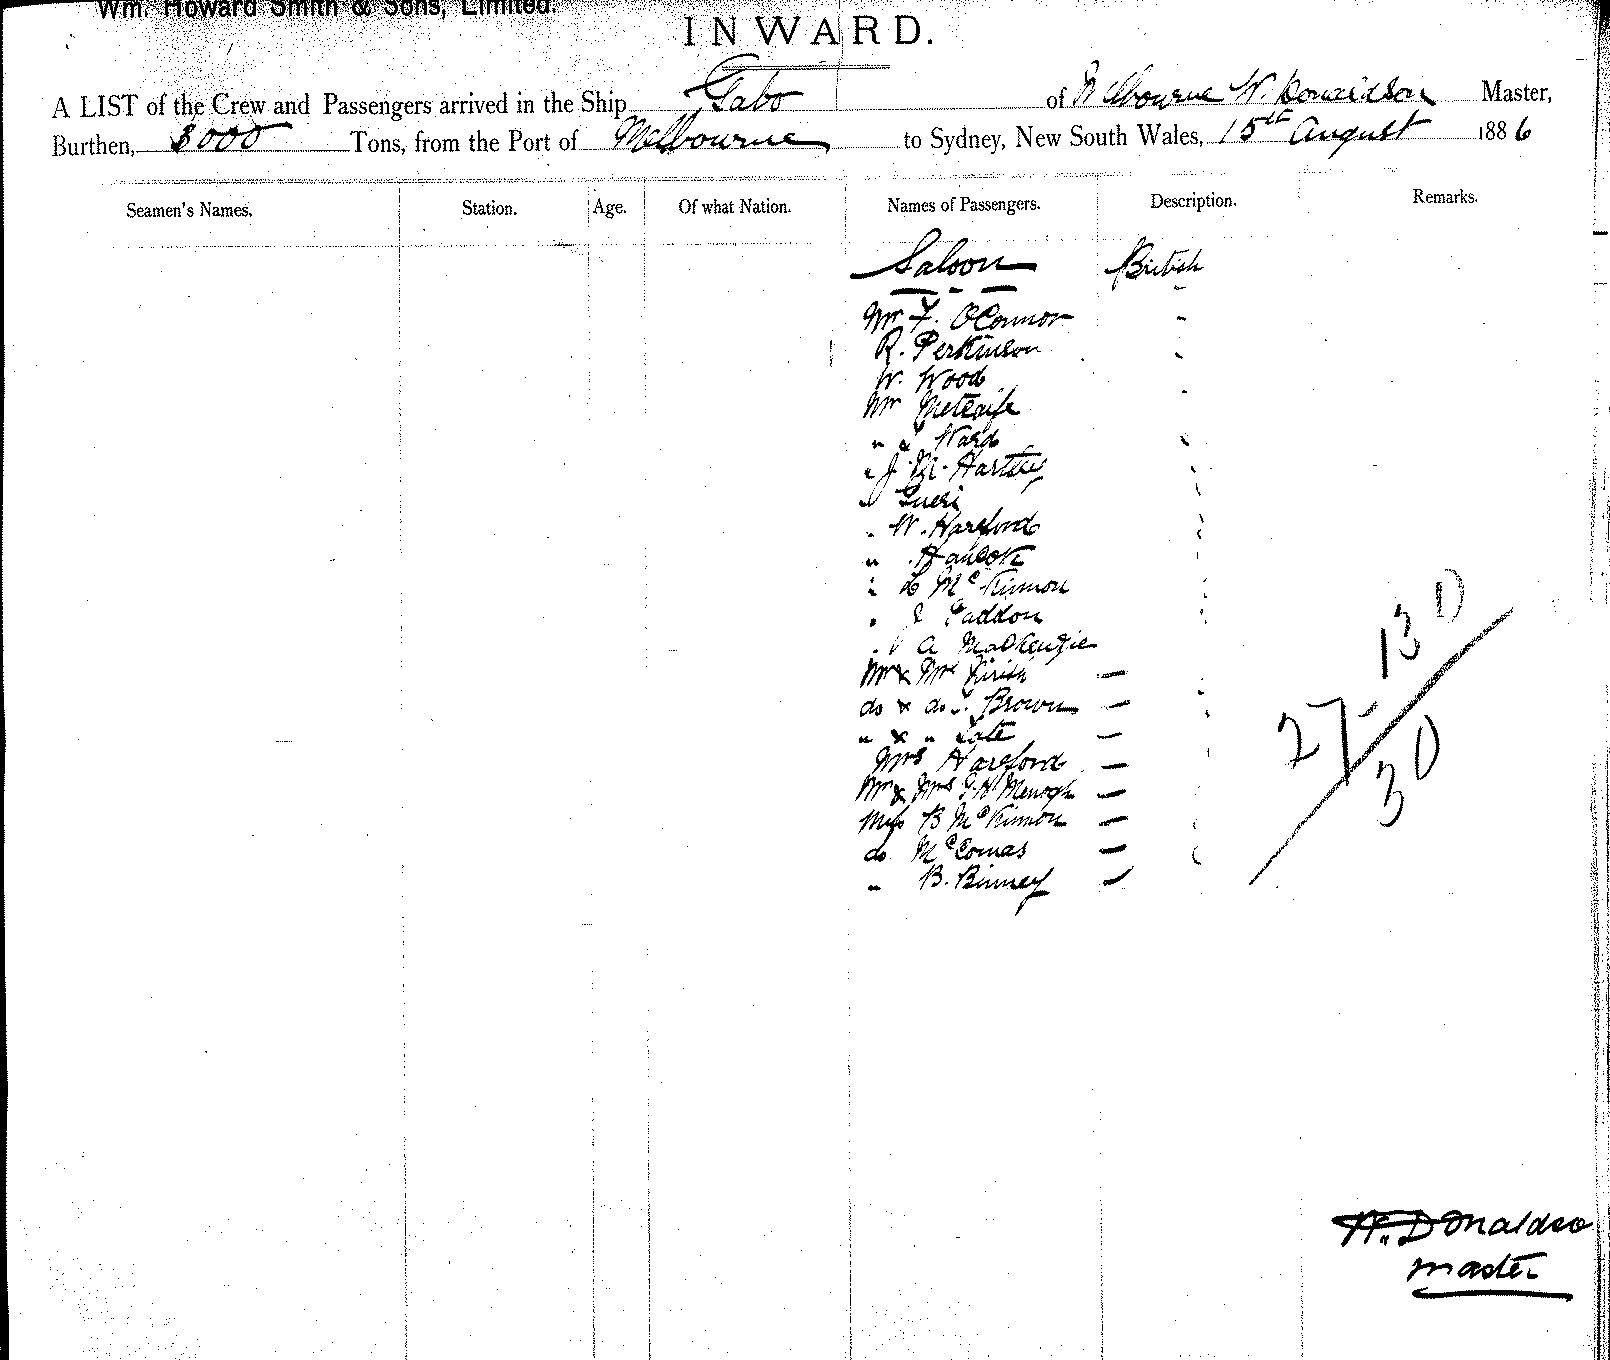 Wm. Howard Smith & Sons, Limited.
INWARD.
A LIST of the Crew and Passengers arrived in the Ship Gabo of Melbourne W. Donaldson Master,
Burthen, 3000 Tons, from the Port of Melbourne to Sydney, New South Wales, 15th August 1886
Seamen's Names. Station. Age. Of what Nation. Names of Passengers. Description. Remarks.
Saloon British
Mr F. OConnor
R. Perkinson
W. Wood
Mr Metcalfe
" " Ward
" J. M. Hartley
"
" W. Hareford
" Hancock
" McKinnon
" J
" A MacKenzie
Mr & Mrs —
do & do Brown —
" & " Tate —
Mrs Hareford —
Mr & Mrs —
Miss B McKinnon —
do McComas —
" B. Binney
13 0
27 -
30
W. Donaldso
master